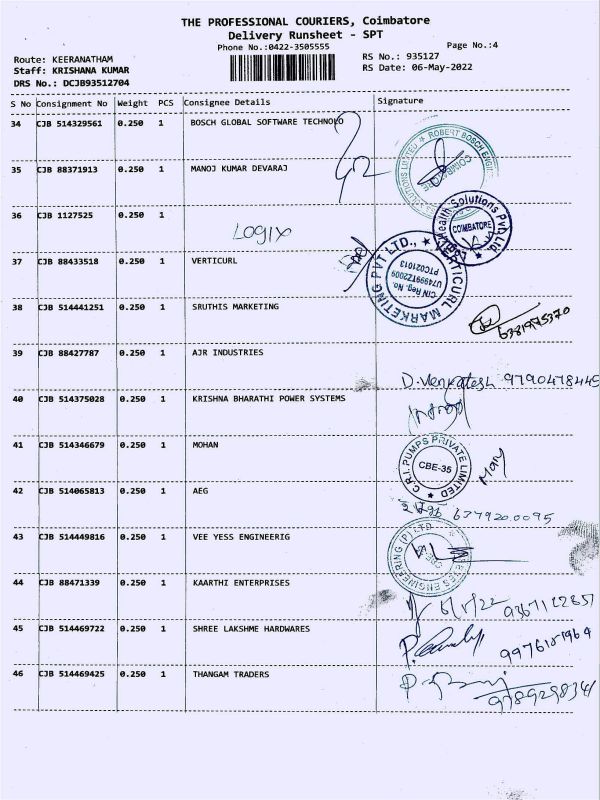 THE PROFESSIONAL COURIERS, Coimbatore
Delivery Runsheet - SPT
Phone No.:0422-3505555
Page No.:4
Route: KEERANATHAM
RS No.: 935127
Staff: KRISHANA KUMAR
RS Date: 06-May-2022
DRS No.: DCJB93512704
S No Consignment No Weight PCS Consignee Details Signature
34 CJB 514329561 0.250 1 BOSCH GLOBAL SOFTWARE TECHNOLO
ROBERT BOSCH ENGI
SOLUTIONS LIMITED
COIMBATORE
35 CJB 88371913 0.250 1 MANOJ KUMAR DEVARAJ
36 CJB 1127525 0.250 1
LOGIX
Health-Solutions Pvt Ltd
COIMBATORE
37 CJB 88433518 0.250 1 VERTICURL
VERTICURL MARKETING PVT LTD.,
CIN Reg. No.
U74999TZ2009
PTC021013
38 CJB 514441251 0.250 1 SRUTHIS MARKETING
6381975370
39 CJB 88427787 0.250 1 AJR INDUSTRIES
D. Venkatesh 9790478445
40 CJB 514375028 0.250 1 KRISHNA BHARATHI POWER SYSTEMS
41 CJB 514346679 0.250 1 MOHAN
C.R.I. PUMPS PRIVATE LIMITED
CBE-35
Mary
42 CJB 514065813 0.250 1 AEG
6379200095
43 CJB 514449816 0.250 1 VEE YESS ENGINEERIG
ENGINEERING (P) LTD
44 CJB 88471339 0.250 1 KAARTHI ENTERPRISES
6/5/22
45 CJB 514469722 0.250 1 SHREE LAKSHME HARDWARES
9976151969
46 CJB 514469425 0.250 1 THANGAM TRADERS
9789298341